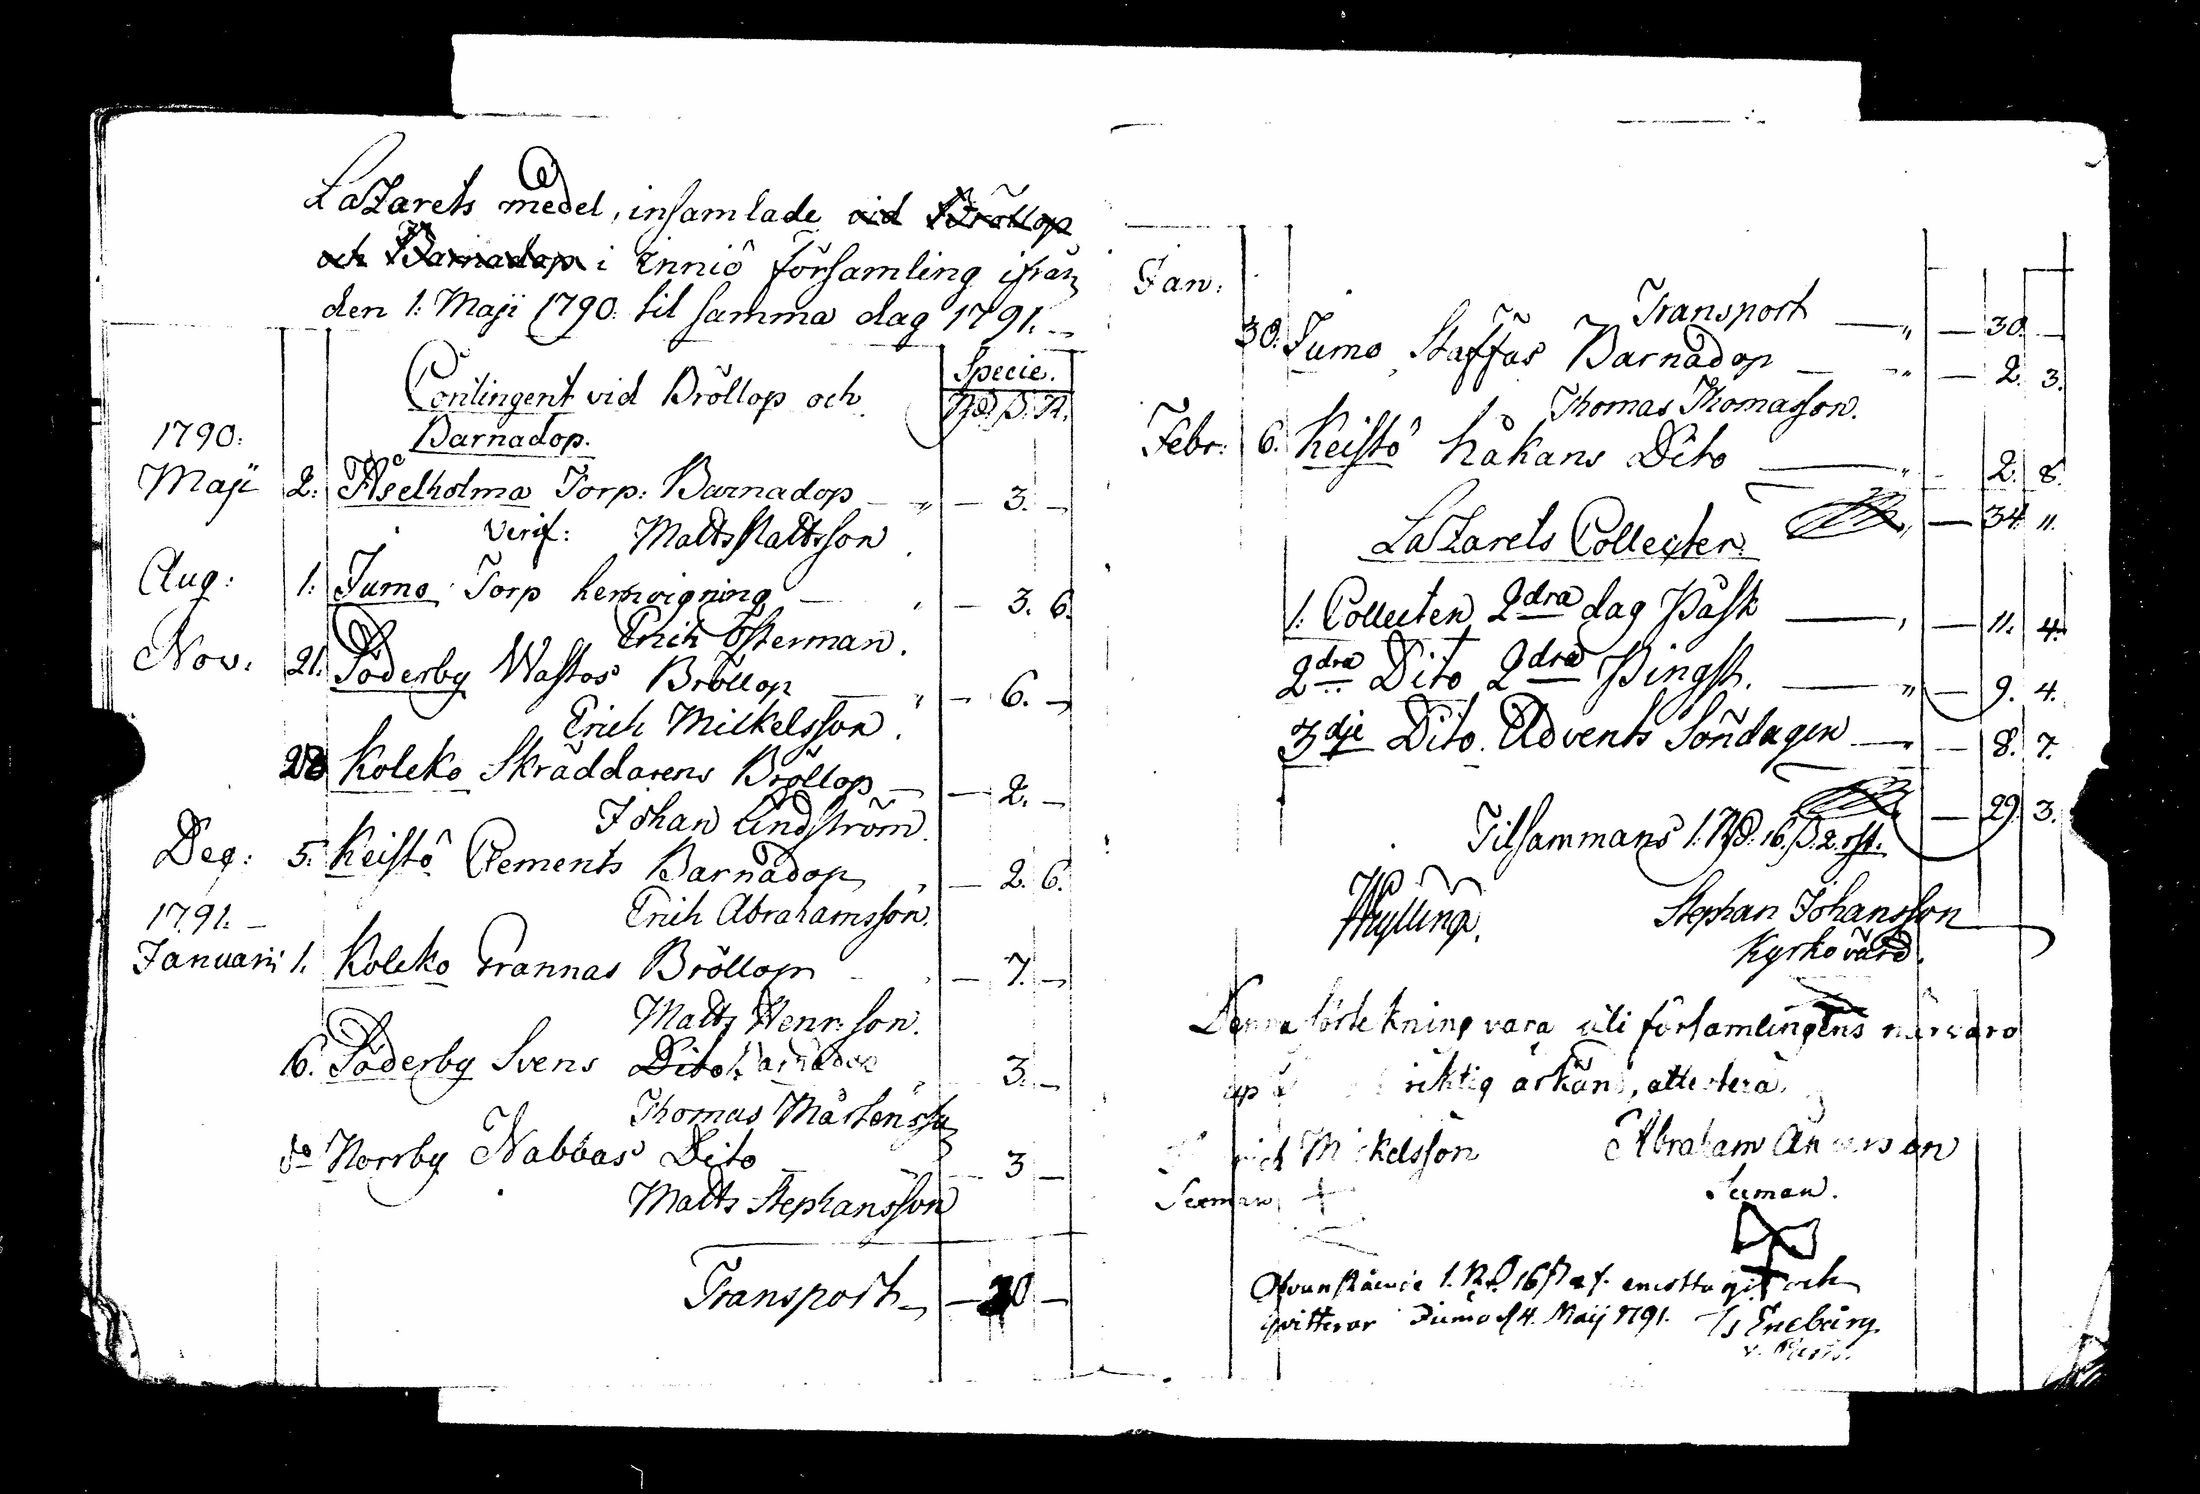 Lazarets medel, insamlade vid Bröllop
och Barnadop i Inniö församling ifrån
den 1. Maji 1790. til samma dag 1791.
Contingent vid Bröllop och
Barnadop.
Specie.
Rd. ß. R.
1790.
Maji 2. Åselholma Torp. Barnadop — „ — 3. —
Verif: Matts Mattsson
Aug: 1. Jumo Torp hemvigning — „ — 3. 6.
Erich Österman.
Nov. 21. Söderby Wastos Bröllop — „ — 6. —
Erich Mickelsson.
28 Koleko Skräddarens Bröllop — — 2. —
Johan Lindström.
Dec: 5. Keistö Clements Barnadop „ — 2. 6.
Erich Abrahamsson.
1791. —
Januarii 1. Koleko Grannas Bröllop — 7. —
Matts Henr:son.
6. Söderby Svens Dito Barnadop „ 3. —
Thomas Mårtensson
do Norrby Nabbas Dito — 3 —
Matts Stephansson
Transport — — 30 —
Jan:
Transport — „ — 30. —
30. Jumo Staffas Barnadop — „ — 2. 3.
Thomas Thomasson.
Febr: 6. Keistö håkans Dito — „ — 2. 8.
„ — 34. 11.
Lazarets Collecter.
1. Collecten 2dra dag Påsk — , — 11. 4.
2dra Dito 2dra Pingst. — „ — 9. 4.
3dje Dito. Advents Söndagen — „ — 8. 7.
— 29. 3.
Tilsammans 1. Rd. 16. ß. 2. rst.
Stephan Johansson
Kyrkovärd.
Denna förtekning vara uti församlingens närvaro
riktig ärkänd, attestera
Mickelsson Abraham Andersson
Sexman + Sexman.
Ofvanstående 1. Rd 16 ß 2 r. emottagit och
qvitterar Jumo d 4. Maij 1791. Is Eneberg